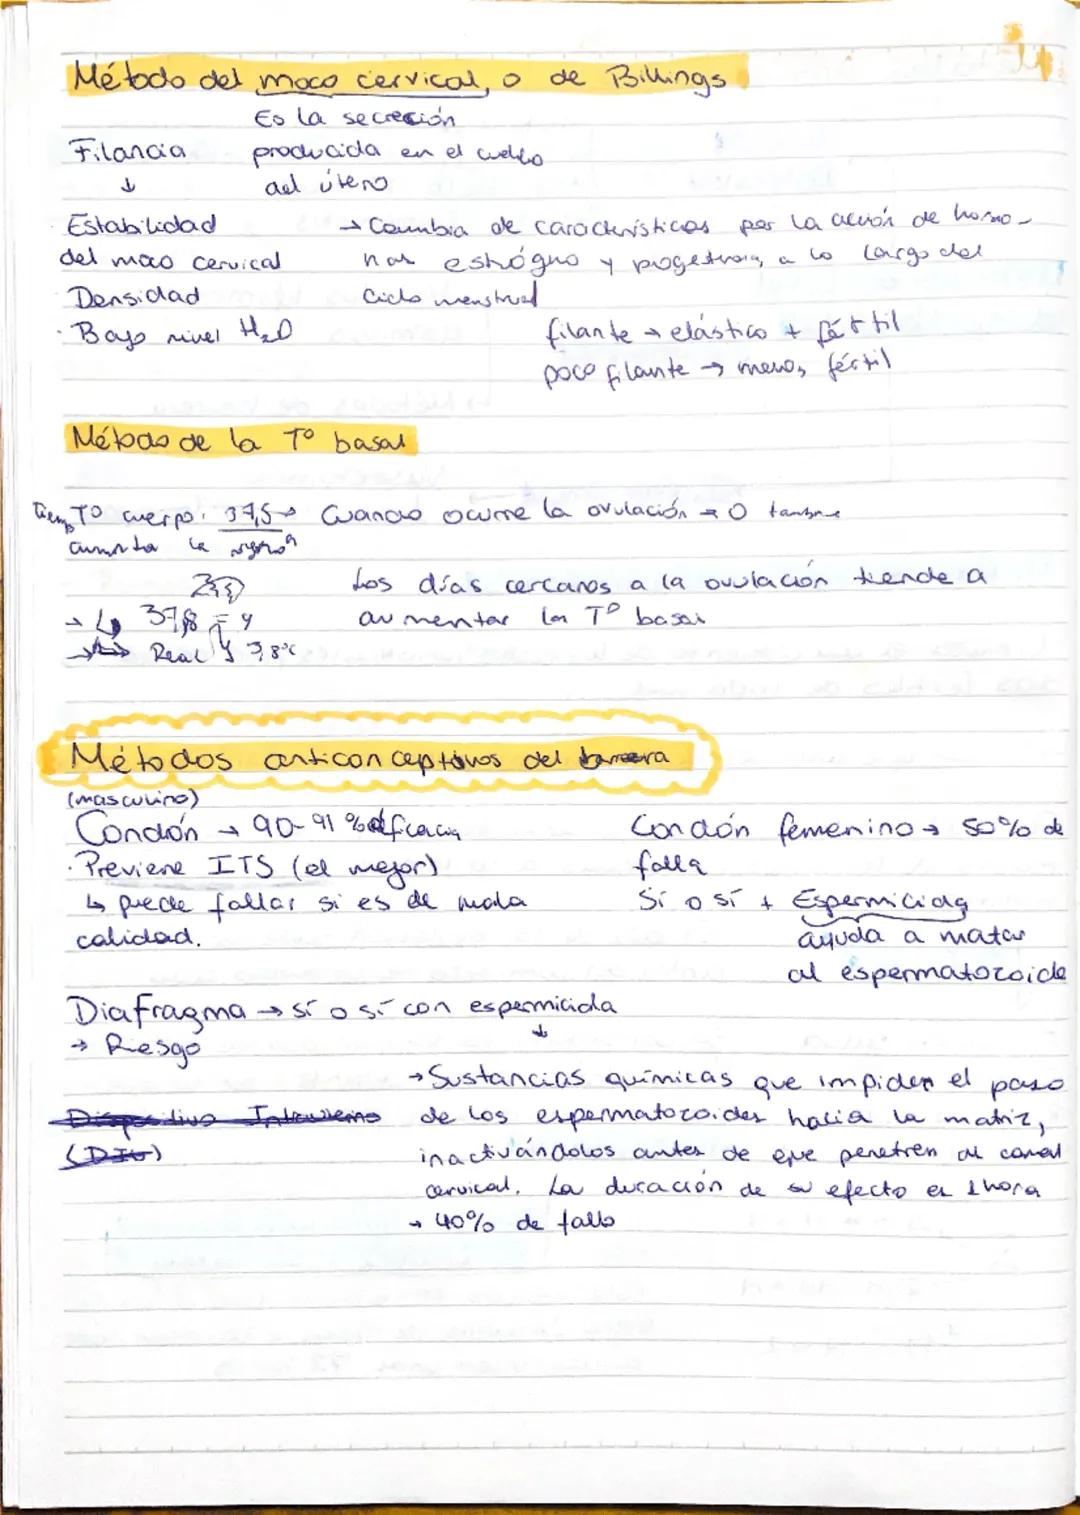 Método del moco cervical, o de Billings
Es la secreción
Filancia producida en el cuello
↓ del útero
Estabilidad
del moco cervical
→ Cambia de características por la acción de hormo-
nas estrógeno y progesterona, a lo largo del
ciclo menstrual
Densidad
· Bajo nivel H₂O
filante → elástico + fértil
poco filante → menos fértil
Método de la Tº basal
Tº cuerpo. 37,5 → Cuando ocurre la ovulación
aumenta la
Los días cercanos a la ovulación tiende a
aumentar la Tº basal
→ 37,8 = y
Real 3,8°c
Métodos anticonceptivos del barrera
(masculino)
Condón → 90-91 % eficacia
· Previene ITS (el mejor)
↳ puede fallar si es de mala
calidad.
Condón femenino → 50% de
falla
Sí o sí + Espermicida
ayuda a matar
al espermatozoide
Diafragma → sí o sí con espermicida
→ Riesgo ↓
→ Sustancias químicas que impiden el paso
de los espermatozoides hacia la matriz,
inactivándolos antes de que penetren al canal
cervical. La duración de su efecto es 1 hora
→ 40% de fallo
Dispositivo Intrauterino
(DIU)